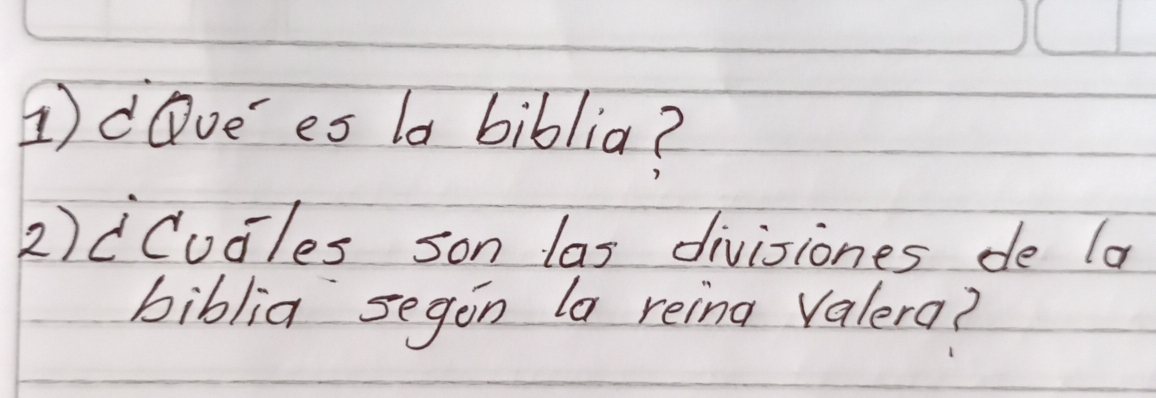 1) ¿Qué es la biblia?
2) ¿Cuáles son las divisiones de la
biblia según la reina valera?